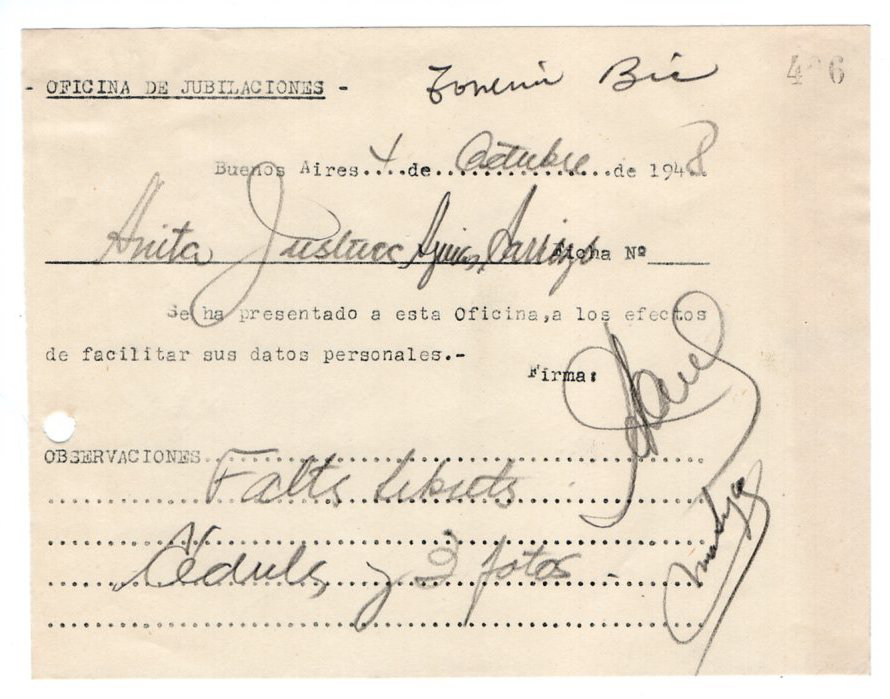 - OFICINA DE JUBILACIONES -
4 6
Buenos Aires....4....de....Octubre....de 1948..
Anita Ficha Nº
Se ha presentado a esta Oficina,a los efectos
de facilitar sus datos personales.-
Firma:
OBSERVACIONES
Falta
Cédula y 3 fotos -